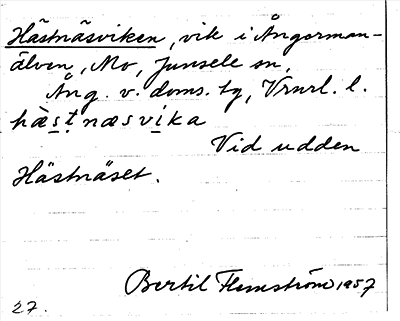 Hästnäsviken, vik i Ångerman-
älven, Mo, Junsele sn,
Ång. v. doms. tg, Vrnrl. l.
hæ̀sṭnæsvika
Vid udden
Hästnäset.
Bertil Flemström 1957
27.